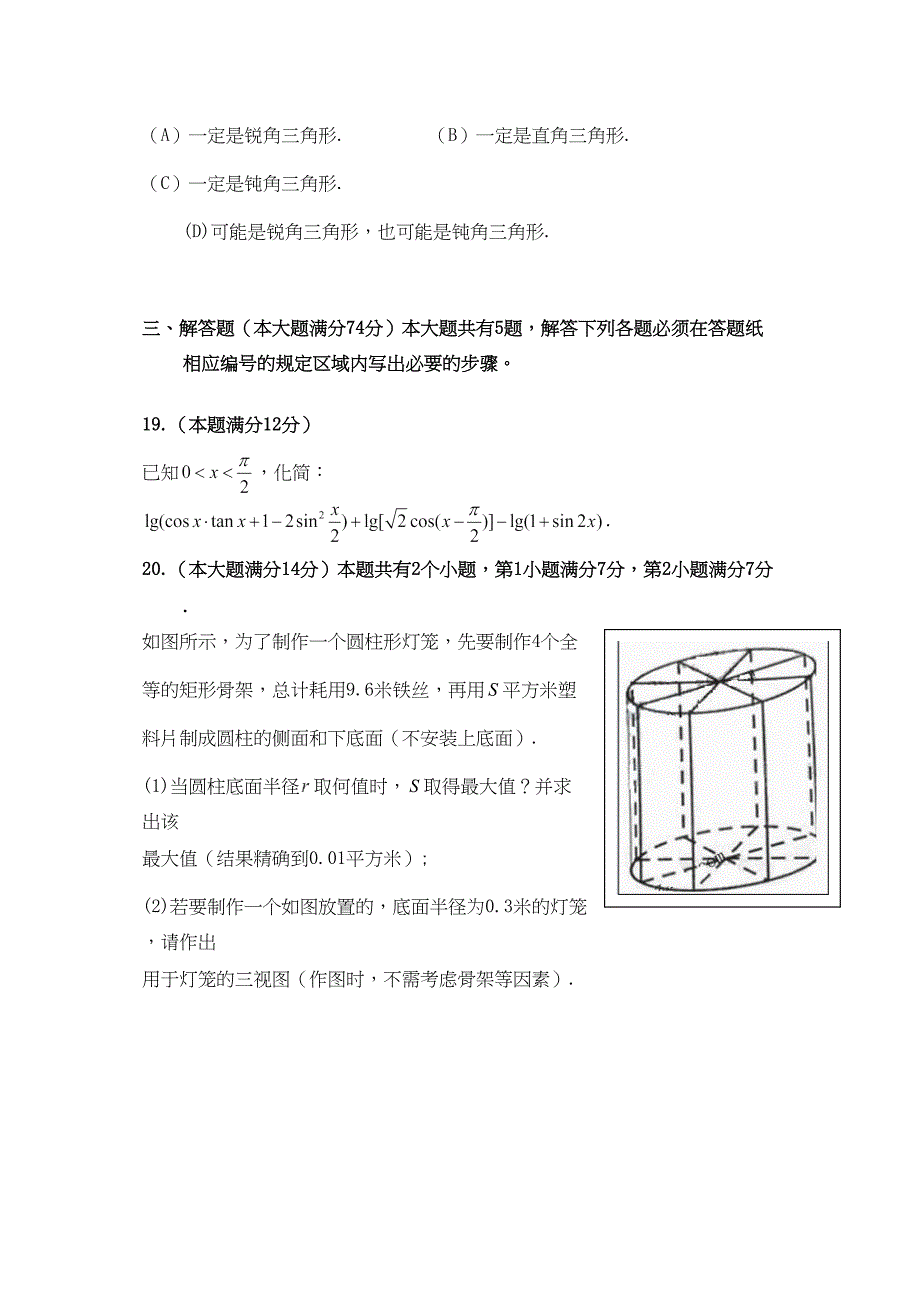 （A）一定是锐角三角形. （B）一定是直角三角形.
（C）一定是钝角三角形.
(D)可能是锐角三角形，也可能是钝角三角形.
三、解答题（本大题满分74分）本大题共有5题，解答下列各题必须在答题纸
相应编号的规定区域内写出必要的步骤。
19.（本题满分12分）
已知0 < x < π/2，化简：
lg(cos x · tan x + 1 − 2sin² x/2) + lg[√2 cos(x − π/2)] − lg(1 + sin 2x).
20.（本大题满分14分）本题共有2个小题，第1小题满分7分，第2小题满分7分
.
如图所示，为了制作一个圆柱形灯笼，先要制作4个全
等的矩形骨架，总计耗用9.6米铁丝，再用S平方米塑
料片制成圆柱的侧面和下底面（不安装上底面）.
(1)当圆柱底面半径r取何值时，S取得最大值？并求
出该
最大值（结果精确到0.01平方米）;
(2)若要制作一个如图放置的，底面半径为0.3米的灯笼
，请作出
用于灯笼的三视图（作图时，不需考虑骨架等因素）.